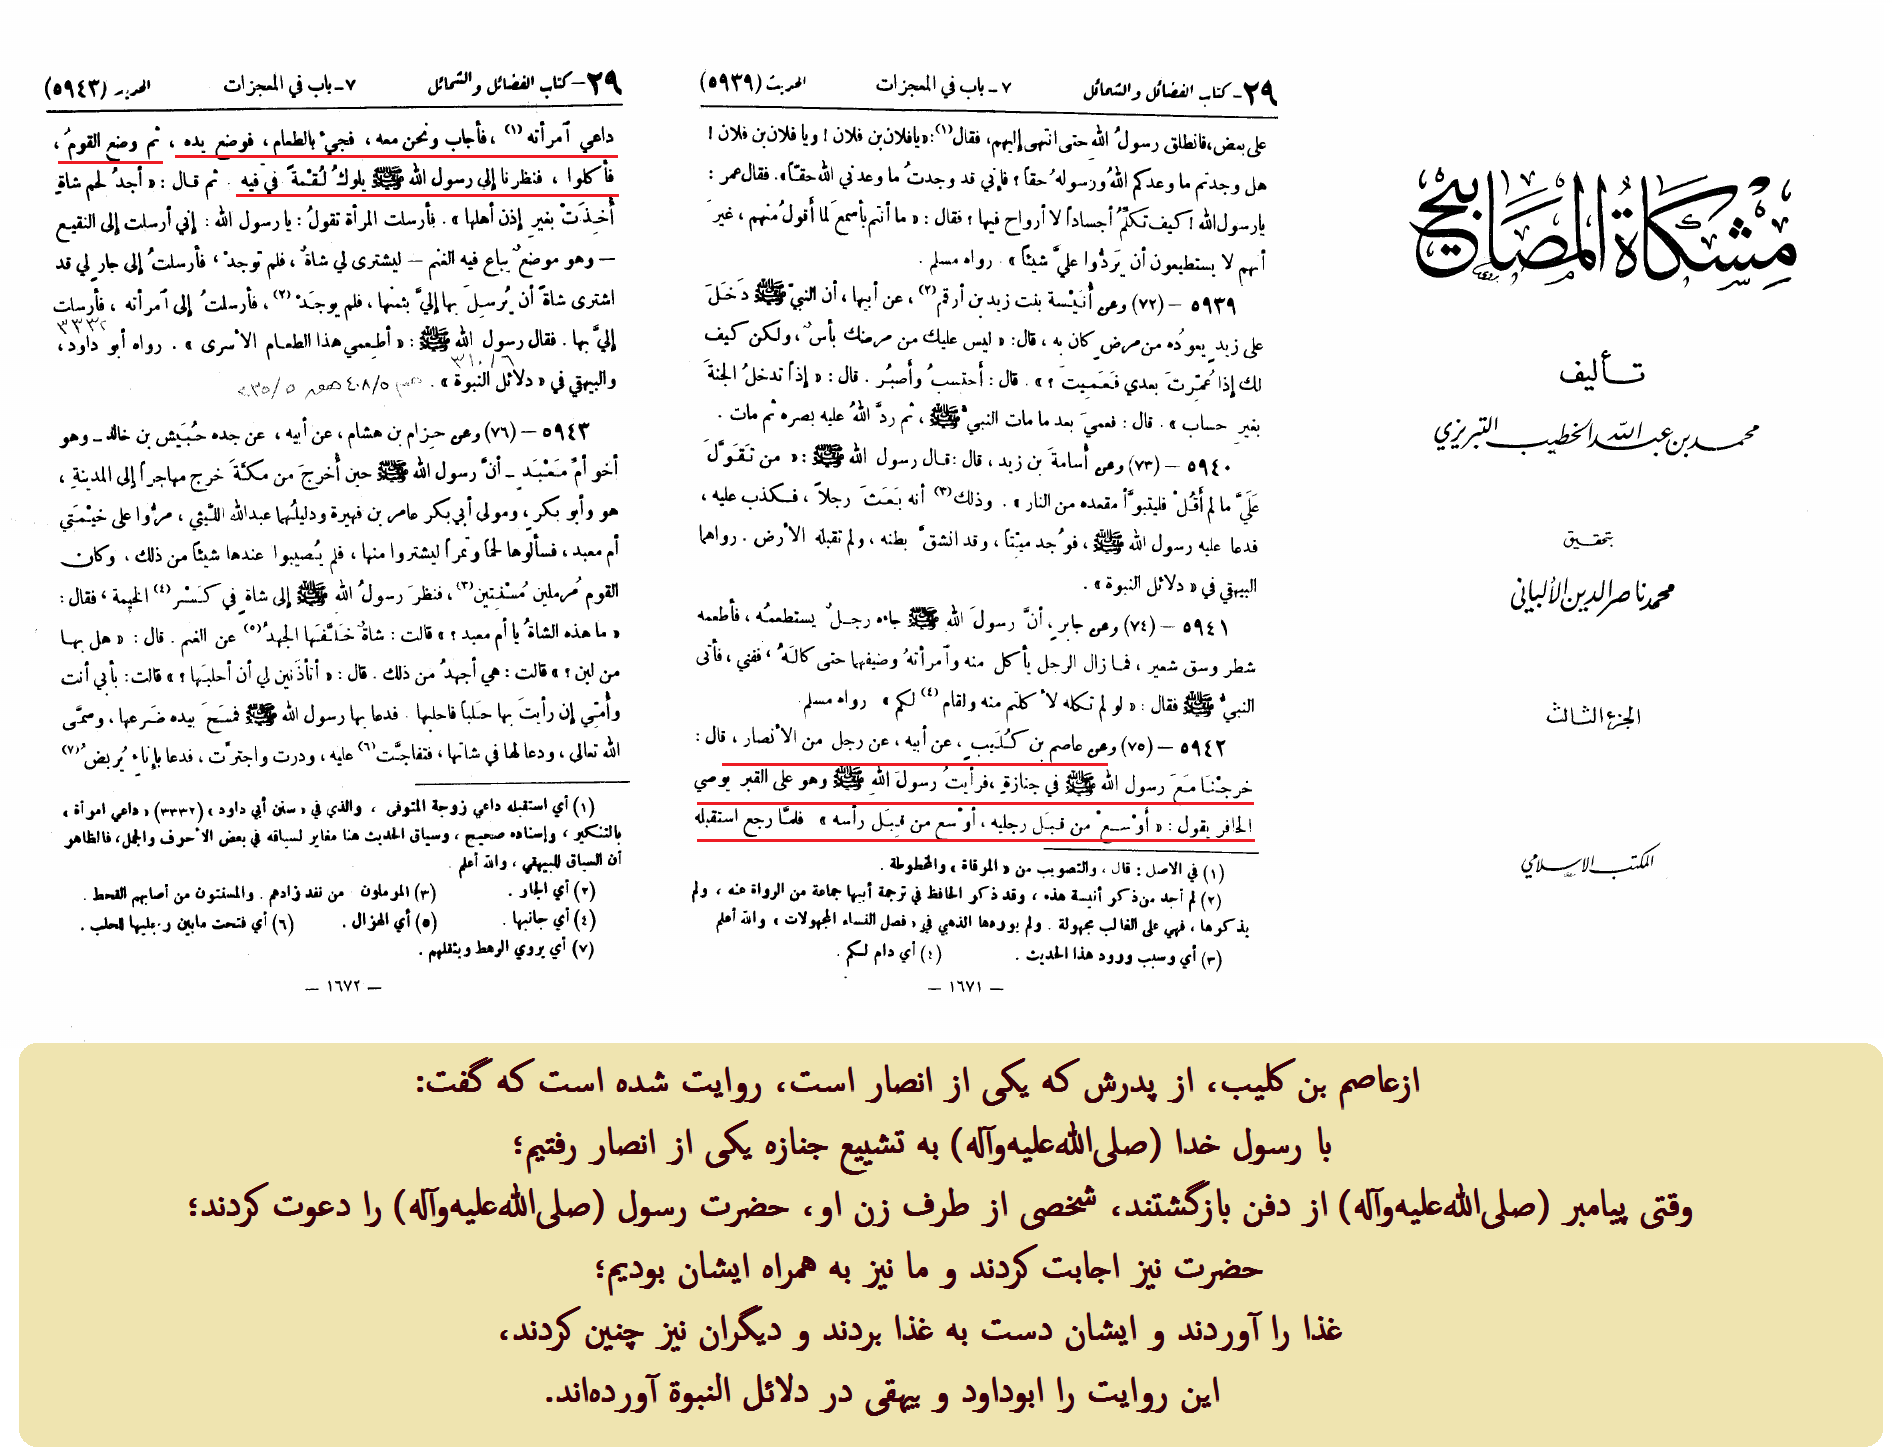 مشكاة المصابيح
تأليف
محمد بن عبد الله الخطيب التبريزي
بتحقيق
محمد ناصر الدين الألباني
الجزء الثالث
المكتب الإسلامي
٢٩ - كتاب الفضائل والشمائل ٧ - باب في المعجزات الحديث (٥٩٣٩)
على بعض، فانطلق رسولُ الله حتى انتهى إليهم، فقال(١): «يا فلان بن فلان! ويا فلان بن فلان!
هل وجدتم ما وعدكم اللهُ ورسولهُ حقاً؟ فإني قد وجدتُ ما وعدني الله حقاً». فقال عمر:
يا رسول الله! كيف تكلِّمُ أجساداً لا أرواح فيها؟ فقال: «ما أنتم بأسمعَ لما أقولُ منهم، غيرَ
أنهم لا يستطيعون أن يَرُدُّوا عليَّ شيئاً». رواه مسلم.
٥٩٣٩ – (٧٢) وعن أُنَيْسة بنت زيد بن أرقم(٢)، عن أبيها، أن النبيَّ ﷺ دَخَلَ
على زيدٍ يعودُه من مرضٍ كان به، قال: «ليس عليك من مرضك بأسٌ، ولكن كيف
لك إذا عُمِّرتَ بعدي فَعَمِيتَ؟». قال: أحتسبُ وأصبُر. قال: «إذاً تدخلُ الجنةَ
بغيرِ حساب». قال: فعميَ بعد ما مات النبيُّ ﷺ، ثم ردَّ اللهُ عليه بصره ثم مات.
٥٩٤٠ – (٧٣) وعن أُسامةَ بن زيد، قال: قال رسول الله ﷺ: «من تَقَوَّلَ
عَلَيَّ ما لم أَقُلْ فليتبوَّأ مقعده من النار». وذلك(٣) أنه بَعَثَ رجلاً، فكذب عليه،
فدعا عليه رسول الله ﷺ، فوُجد ميّتاً، وقد انشقَّ بطنه، ولم تقبله الأرض. رواهما
البيهقي في «دلائل النبوة».
٥٩٤١ – (٧٤) وعن جابرٍ، أنَّ رسولَ الله ﷺ جاءه رجلٌ يستطعمُه، فأطعمه
شطر وسق شعير، فما زال الرجل يأكل منه وامرأتهُ وضيفهما حتى كالَهُ، ففني، فأتى
النبيَّ ﷺ فقال: «لو لم تكله لأكلتم منه ولقام(٤) لكم» رواه مسلم.
٥٩٤٢ – (٧٥) وعن عاصم بن كُلَيبٍ، عن أبيه، عن رجل من الأنصار، قال:
خرجْنا مَعَ رسول الله ﷺ في جنازةٍ، فرأيتُ رسولَ الله ﷺ وهو على القبر يوصي
الحافر يقول: «أوْسِعْ من قِبَل رجليه، أوْسع من قِبَل رأسه» فلمَّا رجع استقبله
(١) في الاصل: قال، والتصويب من «المرقاة» والمخطوطة.
(٢) لم أجد من ذكر أنيسة هذه، وقد ذكر الحافظ في ترجمة أبيها جماعة من الرواة عنه، ولم
يذكرها، فهي على الغالب مجهولة. ولم يوردها الذهبي في «فصل النساء المجهولات» والله أعلم
(٣) أي وسبب ورود هذا الحديث. (٤) أي دام لكم.
– ١٦٧١ –
٢٩ - كتاب الفضائل والشمائل ٧ - باب في المعجزات الحديث (٥٩٤٣)
داعي امرأته(١)، فأجاب ونحن معه، فجيءَ بالطعام، فوضع يده، ثم وضع القومُ،
فأكلوا، فنظرنا إلى رسول الله ﷺ يلوكُ لُقْمةً في فيه. ثم قال: «أجدُ لحم شاةٍ
أُخِذَتْ بغيرِ إذن أهلها». فأرسلت المرأة تقولُ: يا رسول الله: إني أرسلت إلى النقيع
– وهو موضعٌ يباع فيه الغنم – ليشترى لي شاةٌ، فلم توجدْ، فأرسلتُ إلى جارٍ لي قد
اشترى شاةً أن يُرسِلَ بها إليَّ بثمنها، فلم يوجَدْ(٢)، فأرسلتُ إلى امرأته، فأرسلت
إليَّ بها. فقال رسول الله ﷺ: «أطعمي هذا الطعام الأسرى». رواه أبو داود، ٣٣٣٢
والبيهقي في «دلائل النبوة». ٣١٠/٦
٥٩٤٣ – (٧٦) وعن حزام بن هشام، عن أبيه، عن جده حُبَيش بن خالد – وهو
أخو أمِّ مَعْبَدٍ – أنَّ رسول الله ﷺ حين أُخرجَ من مكَّةَ خرج مهاجراً إلى المدينة،
هو وأبو بكرٍ، ومولى أبي بكر عامر بن فهيرة ودليلُهما عبدالله الليثي، مرُّوا على خيْمتَي
أم معبد، فسألوها لحماً وتمراً ليشتروا منها، فلم يُصيبوا عندها شيئاً من ذلك، وكان
القوم مُرملين مُسْنِتين(٣)، فنظرَ رسولُ الله ﷺ إلى شاةٍ في كَسْر(٤) الخيمة، فقال:
«ما هذه الشاةُ يا أم معبد؟» قالت: شاةٌ خَلَّفَها الجهدُ(٥) عن الغنم. قال: «هل بها
من لبن؟» قالت: هي أجهدُ من ذلك. قال: «أتأذنين لي أن أحلبَها؟» قالت: بأبي أنت
وأمِّي إن رأيتَ بها حَلباً فاحلبها. فدعا بها رسول الله ﷺ فمسَحَ بيده ضَرعها، وسمَّى
الله تعالى، ودعا لها في شاتها، فتفاجَّت(٦) عليه، ودرت واجترَّت، فدعا بإناءٍ يُربضُ(٧)
(١) أي استقبله داعي زوجة المتوفى، والذي في «سنن أبي داود» (٣٣٣٢) «داعي امرأة»
بالتنكير، وإسناده صحيح، وسياق الحديث هنا مغاير لسياقه في بعض الأحرف والجمل، فالظاهر
أن السياق للبيهقي، والله أعلم.
(٢) أي الجار. (٣) المرملون من نفد زادهم. والمسنتون من أصابهم القحط.
(٤) أي جانبها. (٥) أي الهزال. (٦) أي فتحت ما بين رجليها للحلب.
(٧) أي يروي الرهط ويثقلهم.
– ١٦٧٢ –
ازعاصم بن کلیب، از پدرش که یکی از انصار است، روایت شده است که گفت:
با رسول خدا (صلی‌الله‌علیه‌وآله) به تشییع جنازه یکی از انصار رفتیم؛
وقتی پیامبر (صلی‌الله‌علیه‌وآله) از دفن بازگشتند، شخصی از طرف زن او، حضرت رسول (صلی‌الله‌علیه‌وآله) را دعوت کردند؛
حضرت نیز اجابت کردند و ما نیز به همراه ایشان بودیم؛
غذا را آوردند و ایشان دست به غذا بردند و دیگران نیز چنین کردند،
این روایت را ابوداود و بیهقی در دلائل النبوة آورده‌اند.